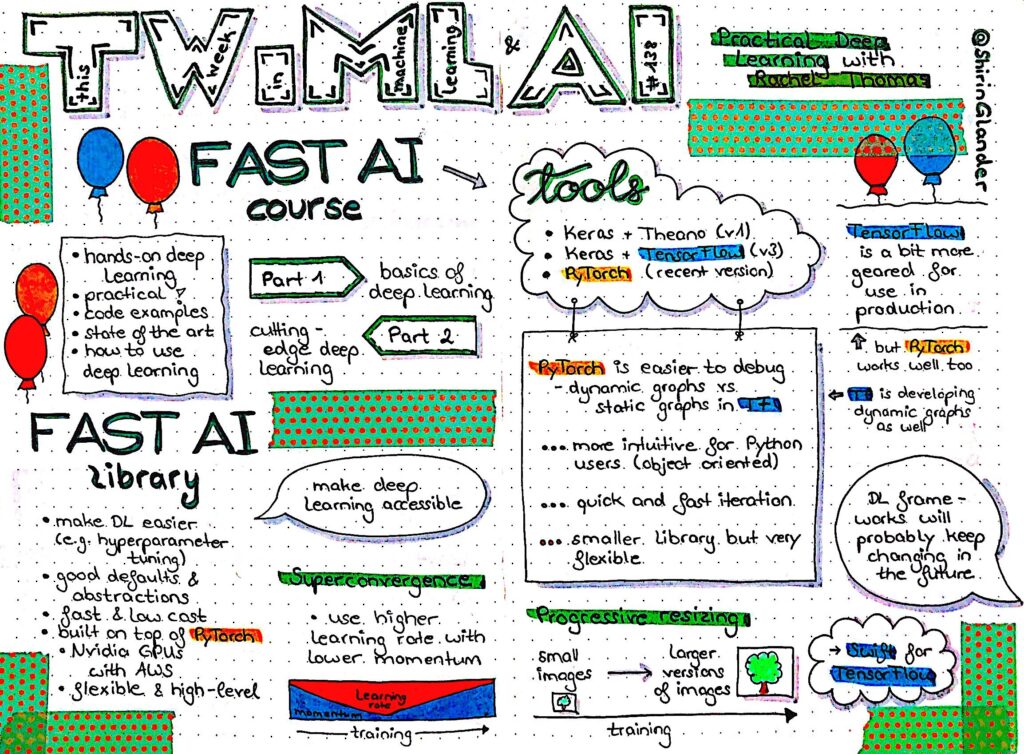 TW.ML & AI
this week in machine learning #138
Practical Deep
Learning with
Rachel Thomas
@ShirinGlander
FAST AI
course
• hands-on deep
learning
• practical
• code examples
• state of the art
• how to use
deep learning
Part 1
basics of
deep learning
cutting-
edge deep
learning
Part 2
tools
• Keras + Theano (v1)
• Keras + TensorFlow (v3)
• PyTorch (recent version)
PyTorch is easier to debug
- dynamic graphs vs.
static graphs in TF
... more intuitive for Python
users (object oriented)
... quick and fast iteration
... smaller library but very
flexible
TensorFlow
is a bit more
geared for
use in
production
⇧ but PyTorch
works well too
← TF is developing
dynamic graphs
as well
DL frame-
works will
probably keep
changing in
the future
→ Swift for
TensorFlow
FAST AI
library
• make DL easier
(e.g. hyperparameter
tuning)
• good defaults &
abstractions
• fast & low cost
• built on top of PyTorch
• Nvidia GPUs
with AWS
• flexible & high-level
make deep
learning accessible
Superconvergence
use higher
learning rate with
lower momentum
Learning
rate
momentum
training
Progressive resizing
small
images
larger
versions
of images
training